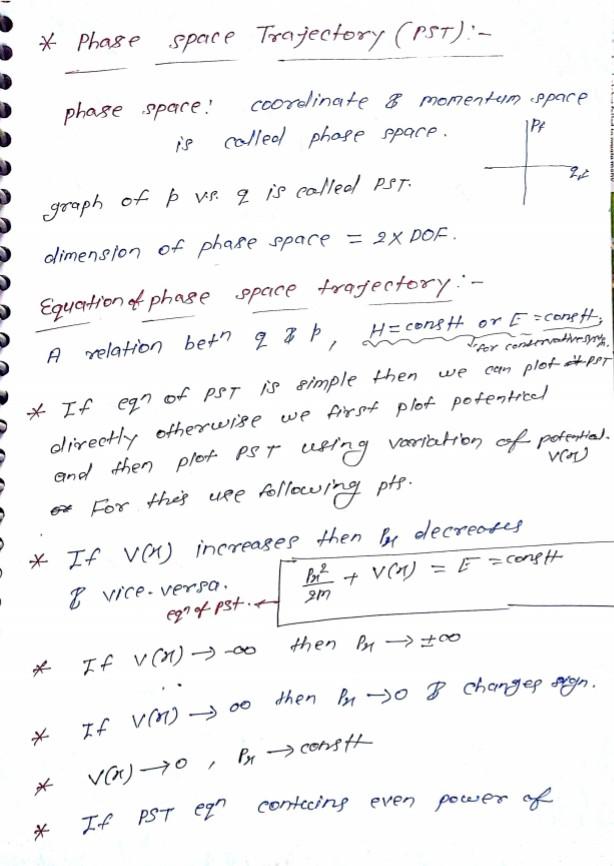 * Phase space Trajectory (PST):-
phase space: coordinate & momentum space
is called phase space.
graph of p v.s. q is called PST.
dimension of phase space = 2 x DOF.
Equation of phase space trajectory:-
A relation betn q & p, H = constt or E = constt,
for conservative sys.
* If eqn of PST is simple then we can plot PST
directly otherwise we first plot potential
and then plot PST using variation of potential.
V(x)
For this use following pts.
* If V(x) increases then Px decreases
& vice-versa.
Px²/2m + V(x) = E = constt
eqn of pst.
* If V(x) → -∞ then Px → ±∞
* If V(x) → ∞ then Px → 0 & changes sign.
* V(x) → 0, Px → constt
* If PST eqn contains even power of